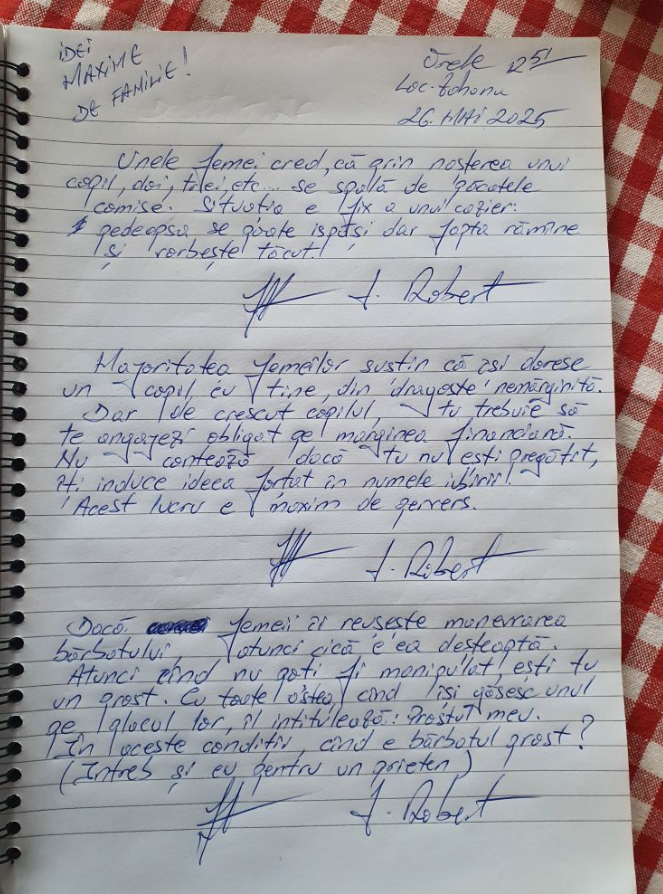 IDEI
MAXIME
DE FAMILIE!
Orele 12 51
Loc.
26. MAI 2025
Unele femei cred, că prin nașterea unui
copil, doi, trei, etc... se spală de păcatele
comise. Situația e fix a unui cazier:
pedeapsa se poate ispăși dar fapta rămîne
și vorbește tăcut!
J. Robert
Majoritatea femeilor susțin că își doresc
un copil cu tine, din dragoste nemărginită.
Dar de crescut copilul, tu trebuie să
te angajezi obligat pe marginea financiară.
Nu contează dacă tu nu ești pregătit,
îți induce ideea forțat în numele iubirii!
Acest lucru e maxim de pervers.
J. Robert
Dacă femeii îi reușește manevrarea
bărbatului, atunci cică e ea deșteaptă.
Atunci cînd nu poți fi manipulat, ești tu
un prost. Cu toate astea, cînd își găsesc unul
pe placul lor, îl intitulează: Prostul meu.
În aceste condiții, cînd e bărbatul prost?
(Întreb și eu pentru un prieten)
J. Robert